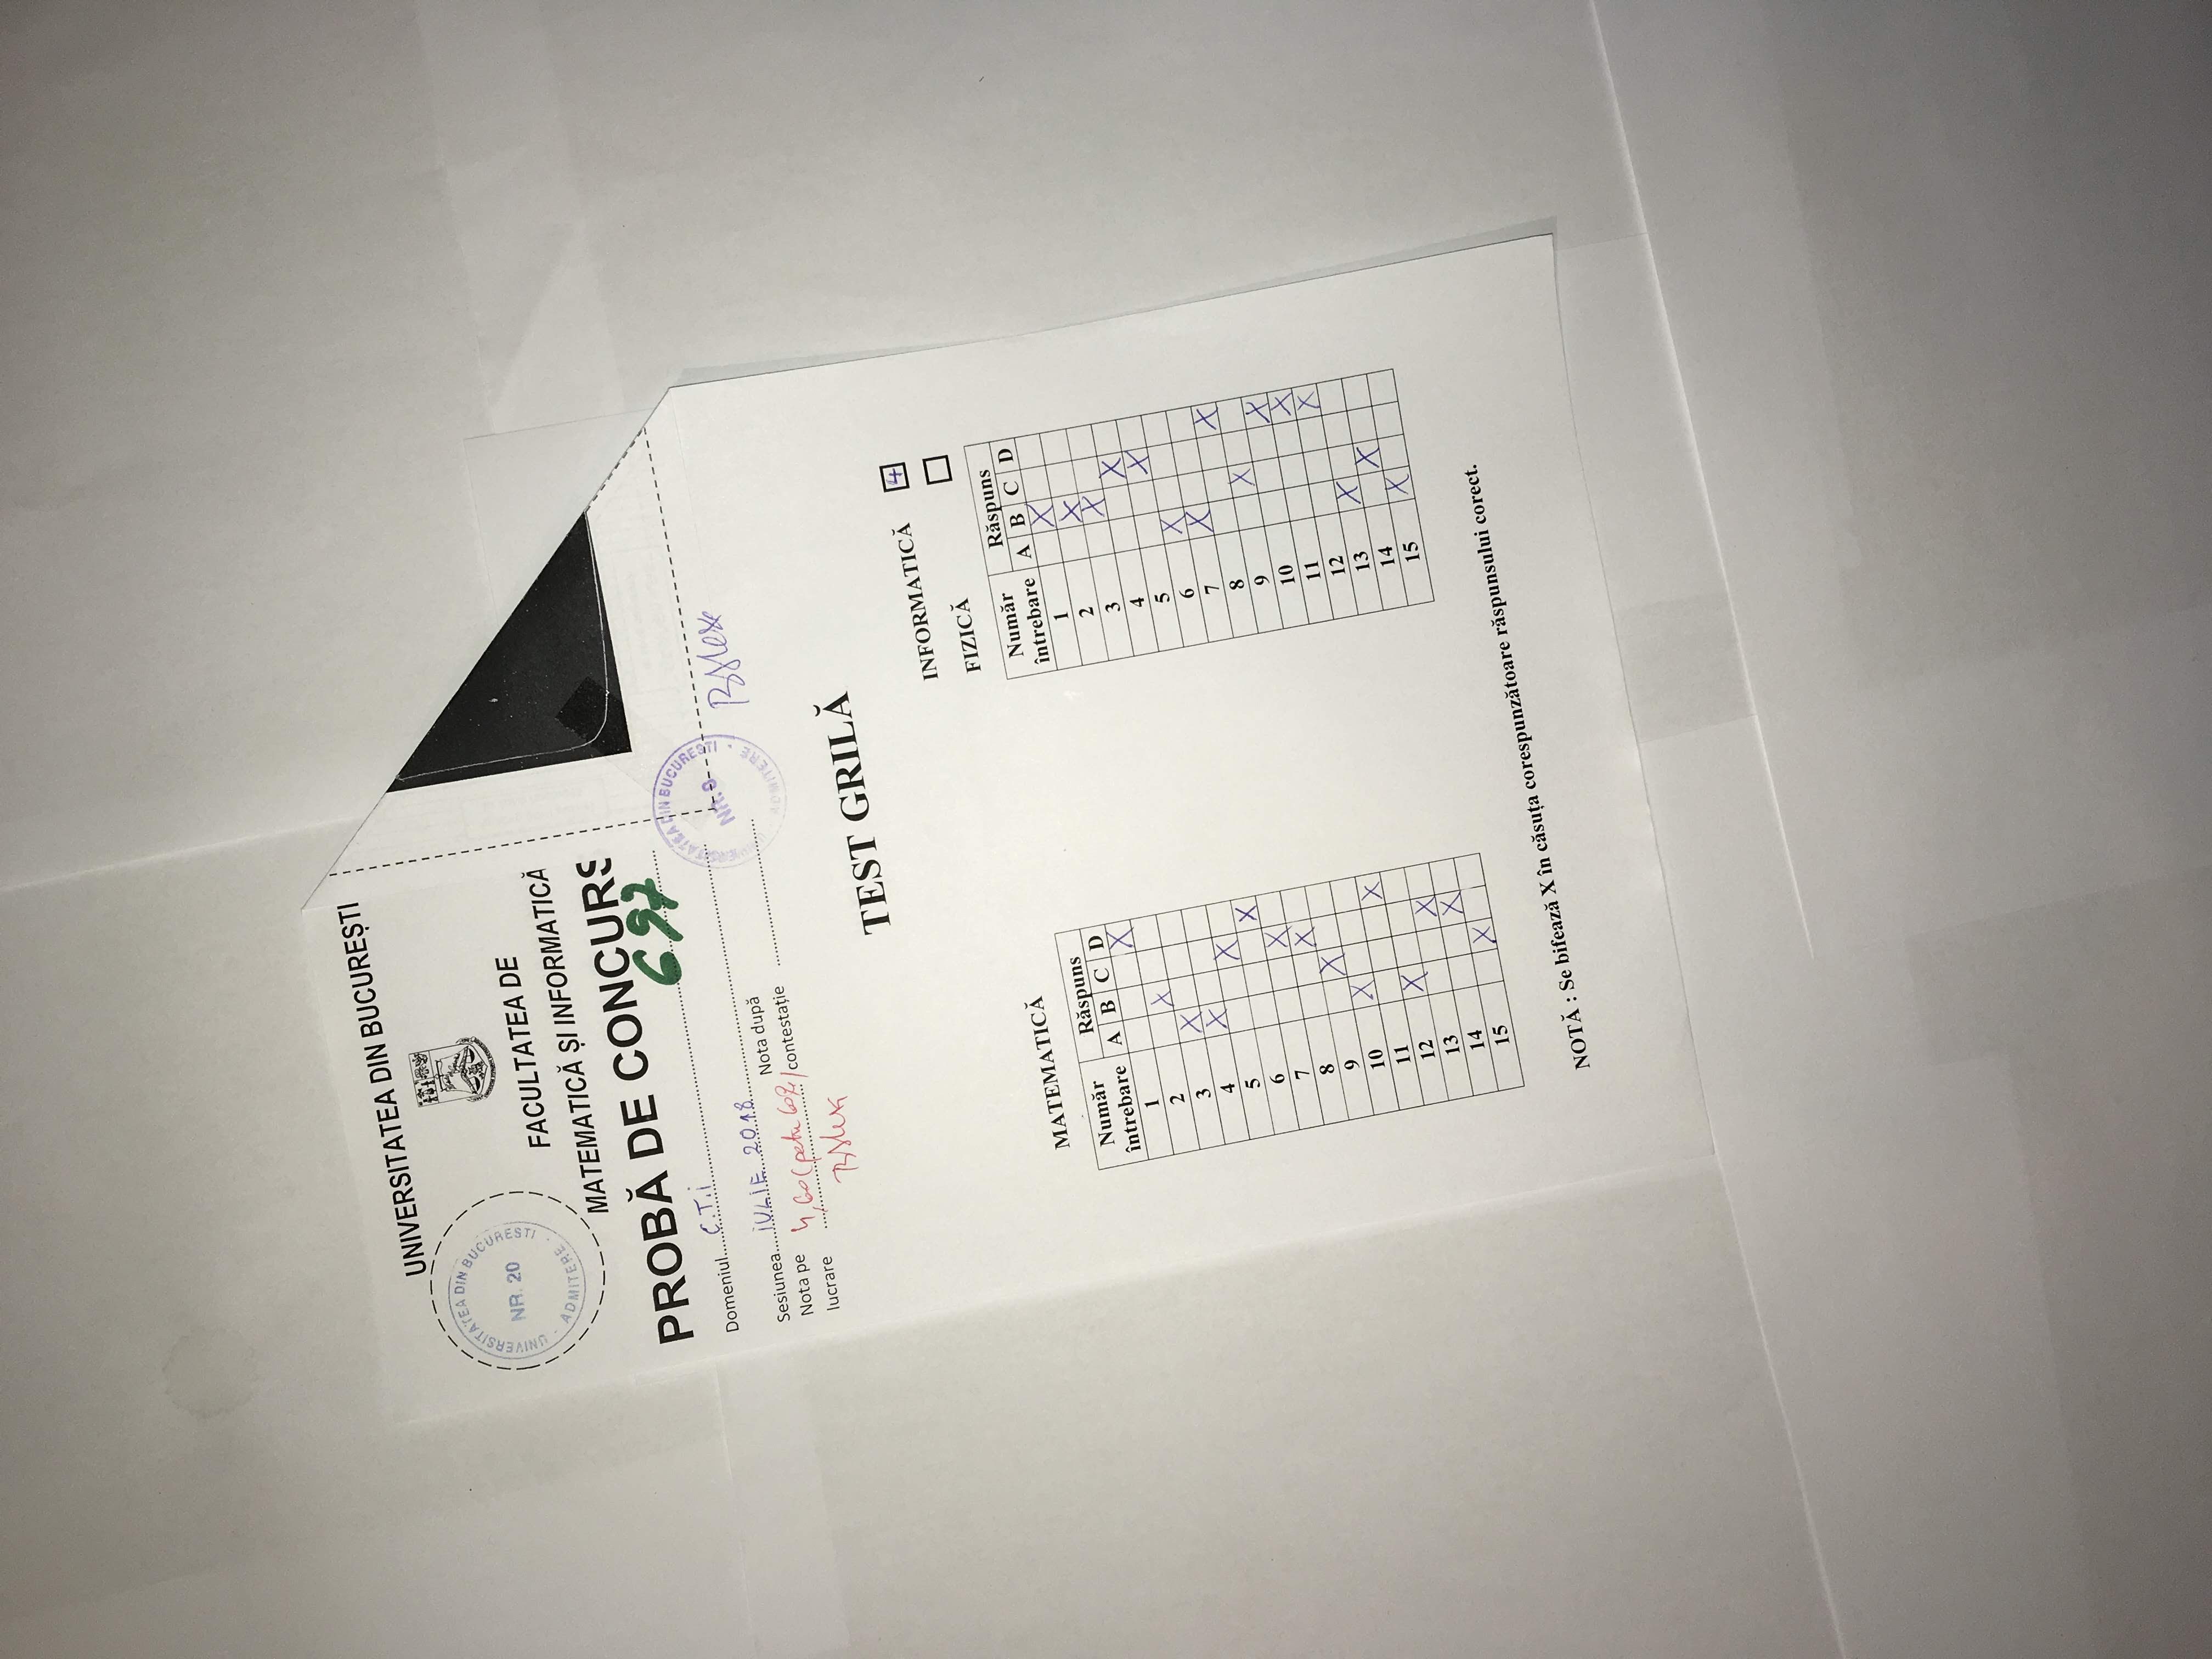 UNIVERSITATEA DIN BUCUREȘTI
UNIVERSITATEA DIN BUCUREȘTI
NR. 20
ADMITERE
FACULTATEA DE
MATEMATICĂ ȘI INFORMATICĂ
PROBĂ DE CONCURS
697
Domeniul C.T.i
Sesiunea iULiE 2018
Nota pe lucrare 4,60 (
Nota după contestație
UNIVERSITATEA DIN BUCUREȘTI
NR. 9
ADMITERE
TEST GRILĂ
MATEMATICĂ
Număr întrebare Răspuns
A B C D
1 X
2 X
3 X
4 X
5 X
6 X
7 X
8 X
9 X
10 X
11 X
12 X
13 X
14 X
15 X
INFORMATICĂ
FIZICĂ
Număr întrebare Răspuns
A B C D
1 X
2 X
3 X
4 X
5 X
6 X
7 X
8 X
9 X
10 X
11 X
12 X
13 X
14 X
15 X
NOTĂ : Se bifează X în căsuța corespunzătoare răspunsului corect.